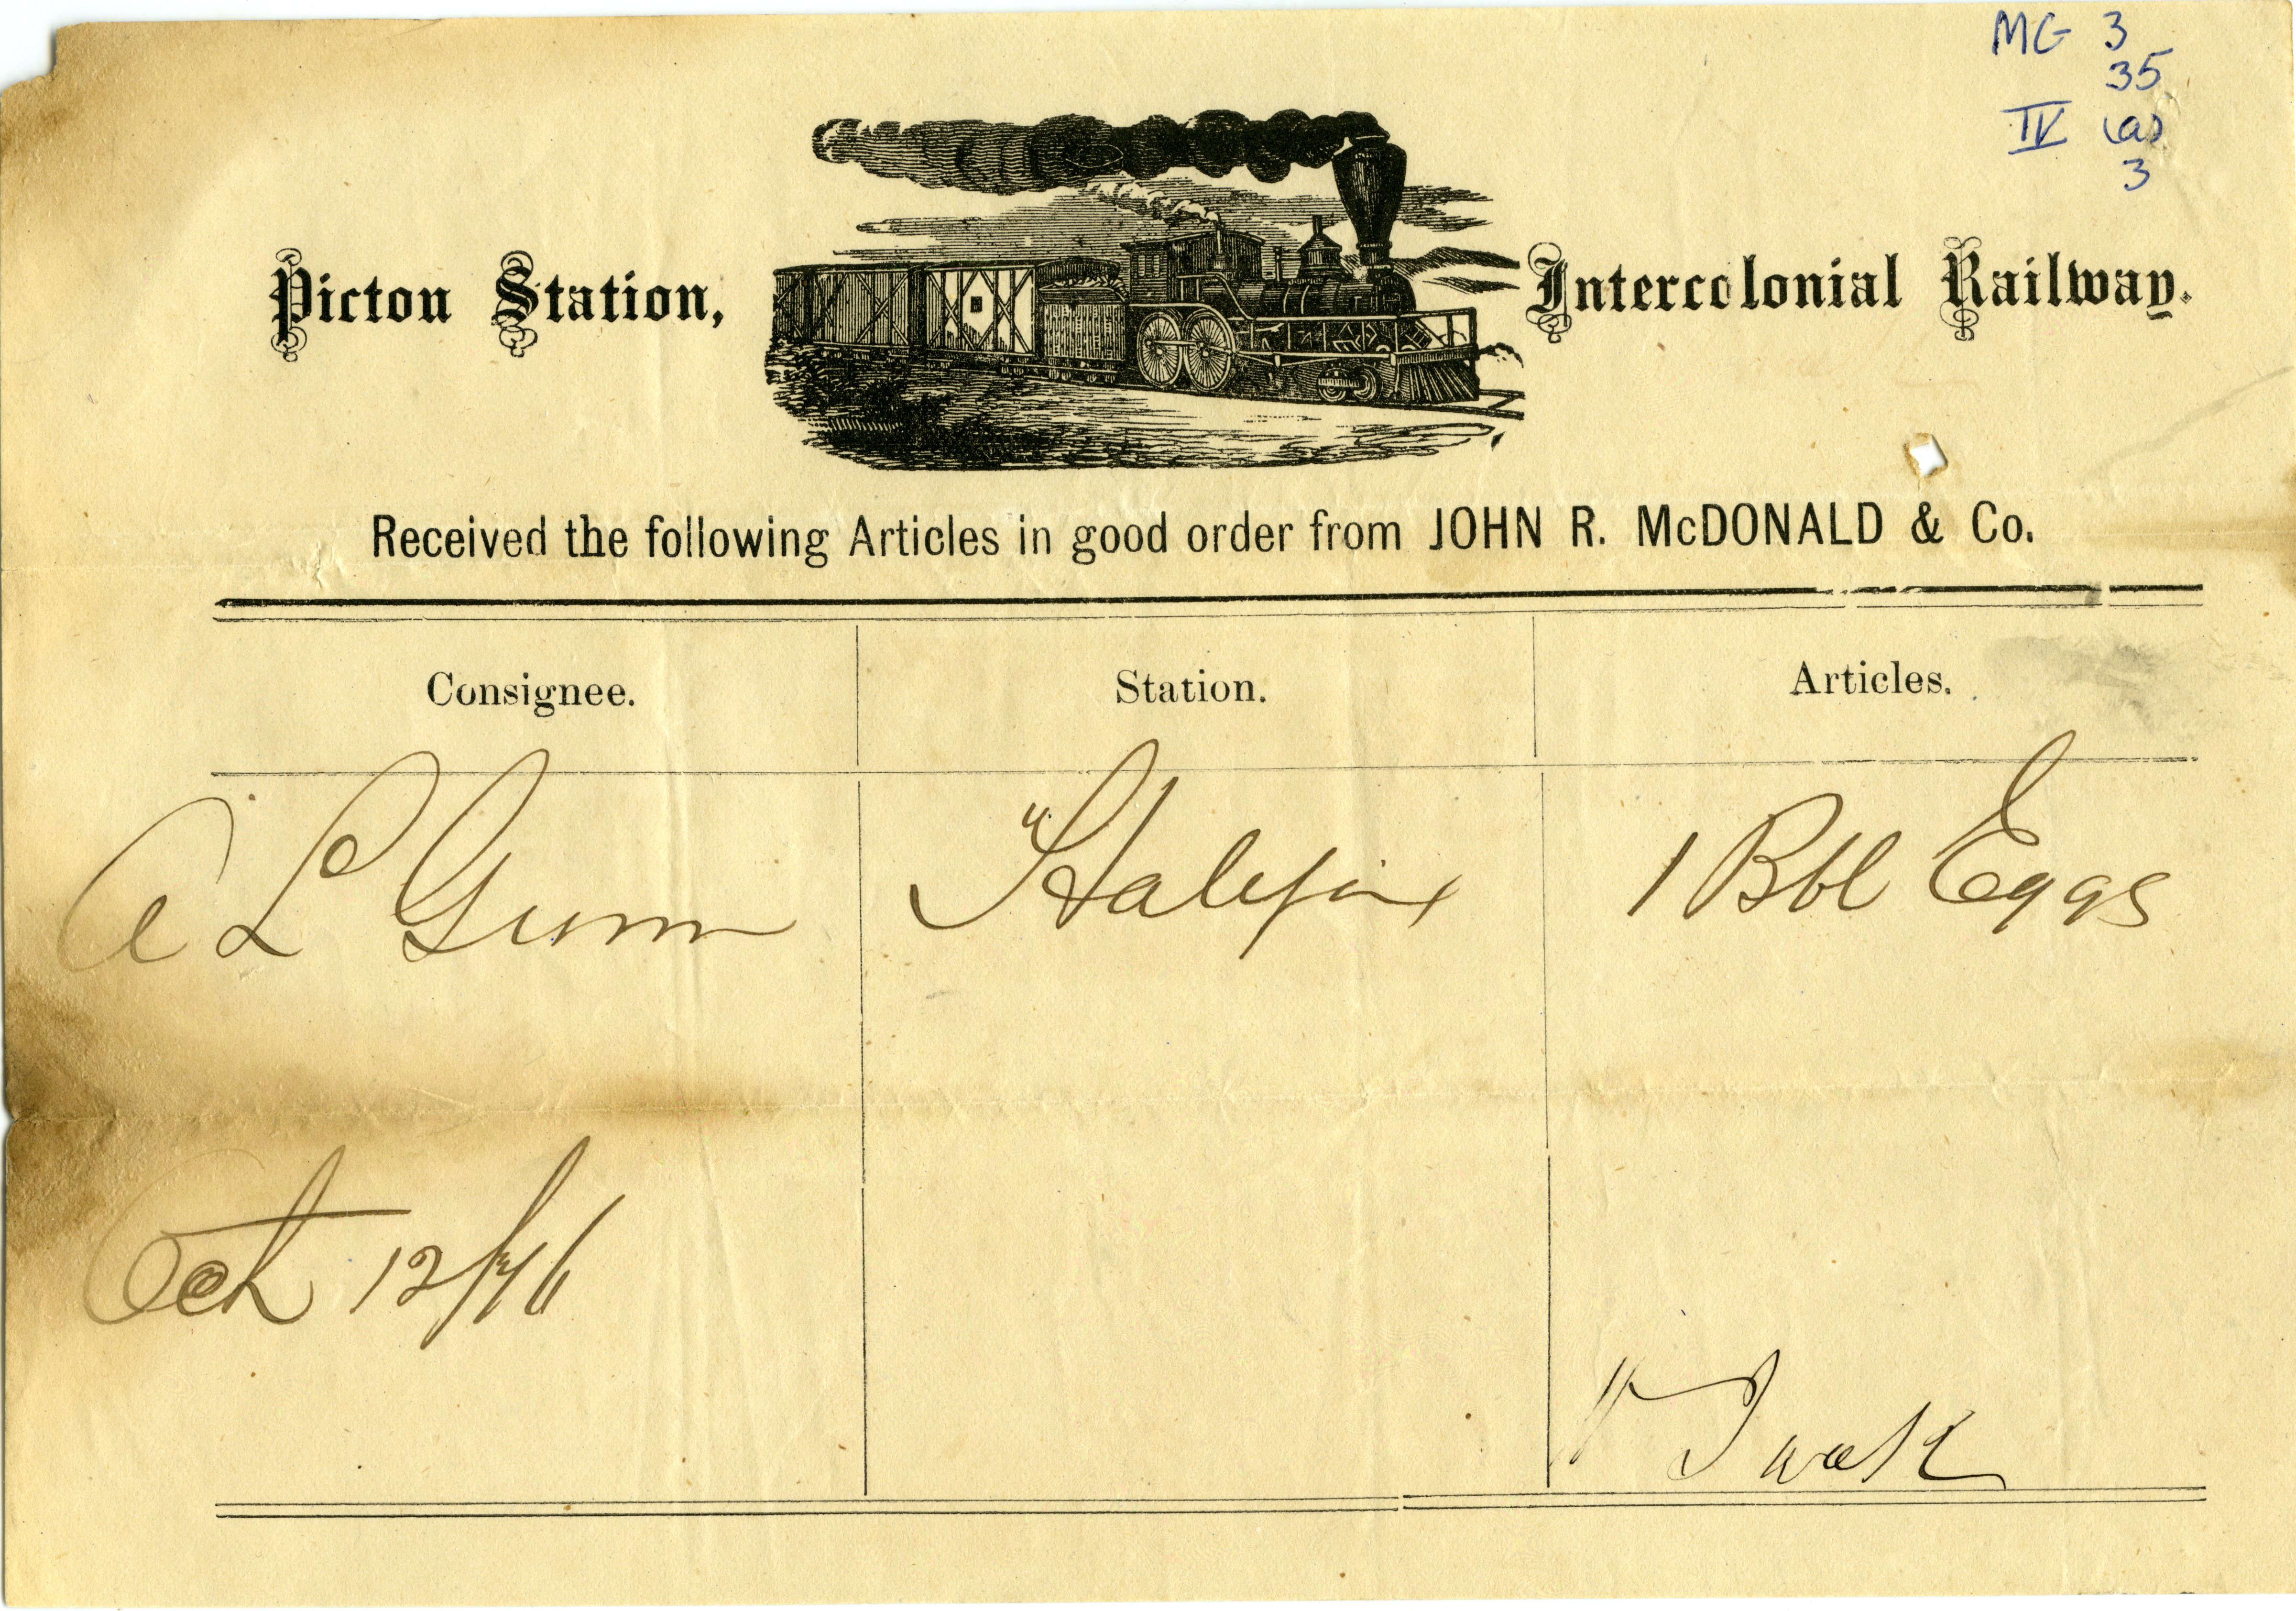 MG 3
35
IV (a)
3
Pictou Station, Intercolonial Railway.
Received the following Articles in good order from JOHN R. McDONALD & Co.
Consignee. Station. Articles.
A L Gunn Halifax 1 Bbl Eggs
Oct 12/76